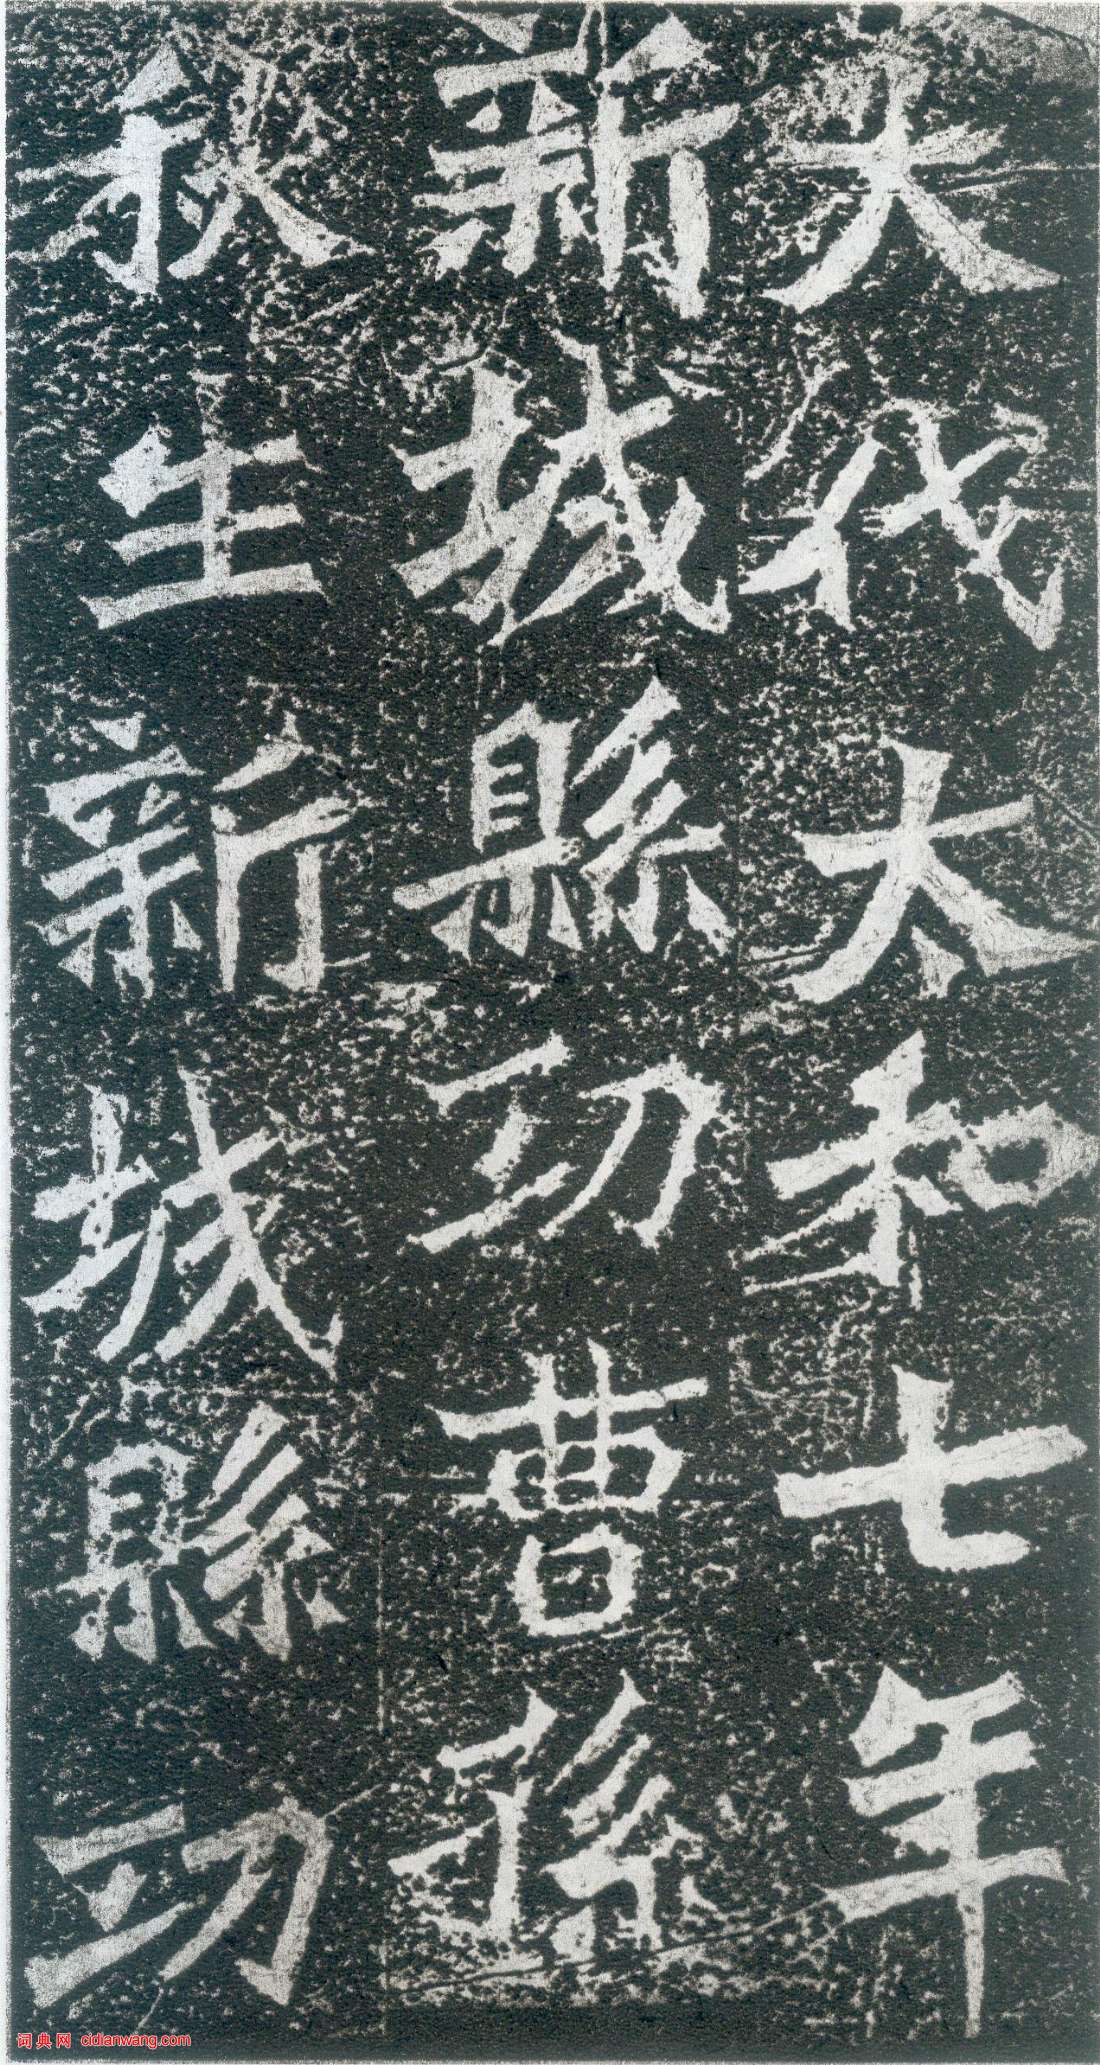 大代太和七年
新城縣功曹孫
秋生新城縣功
词典网 cidianwang.com